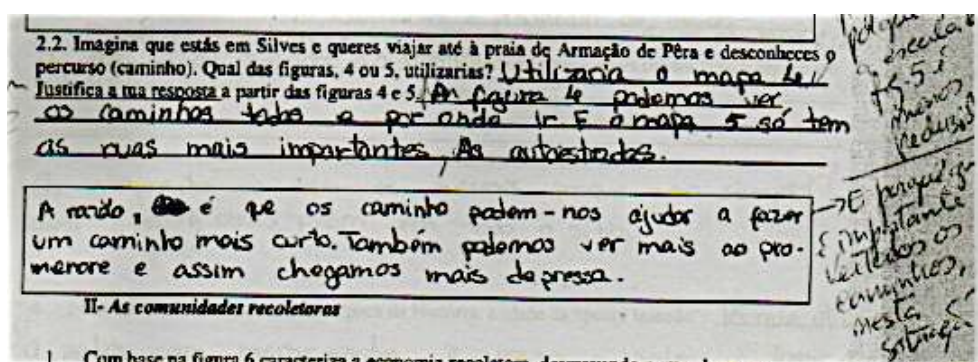 2.2. Imagina que estás em Silves e queres viajar até à praia de Armação de Pêra e desconheces o
percurso (caminho). Qual das figuras, 4 ou 5, utilizarias? Utilizaria o mapa 4
Justifica a tua resposta a partir das figuras 4 e 5. Na figura 4 podemos ver
os caminhos todos e por onde ir E o mapa 5 só tem
as ruas mais importantes, As autoestradas.
A razão, é qe os caminho podem-nos ajudar a fazer
um caminho mais curto. Também podemos ver mais ao pro-
menore e assim chegamos mais depressa.
II- As comunidades recoletoras
1. Com base na figura 6 caracteriza a economia recoletora,
escala
5 é
menos
E porquê
importante
os
caminhos,
nesta